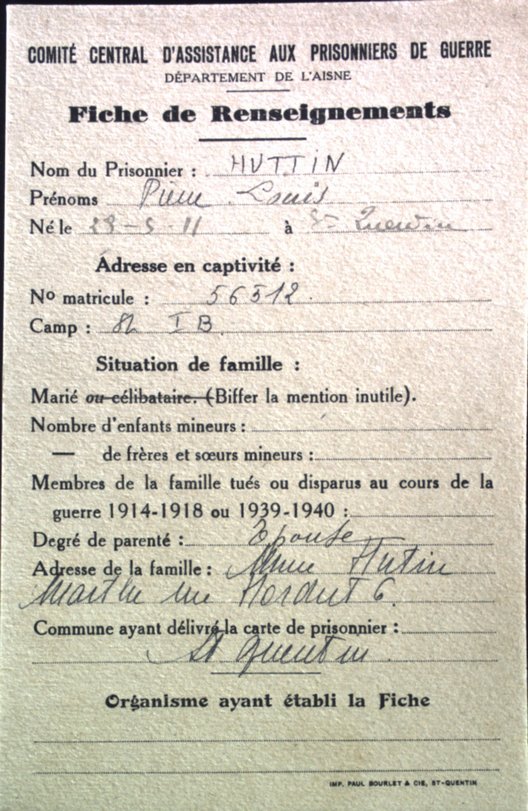 COMITÉ CENTRAL D'ASSISTANCE AUX PRISONNIERS DE GUERRE
DÉPARTEMENT DE L'AISNE
Fiche de Renseignements
Nom du Prisonnier : HUTTIN
Prénoms Pierre Louis
Né le 29-5-11 à St Quentin
Adresse en captivité :
No matricule : 56512
Camp : I B
Situation de famille :
Marié ou célibataire. (Biffer la mention inutile).
Nombre d'enfants mineurs :
— de frères et sœurs mineurs :
Membres de la famille tués ou disparus au cours de la
guerre 1914-1918 ou 1939-1940 :
Degré de parenté : Epouse
Adresse de la famille : Mme Hutin
Marthe rue 6
Commune ayant délivré la carte de prisonnier :
St Quentin
Organisme ayant établi la Fiche
IMP. PAUL BOURLET & CIE, ST-QUENTIN